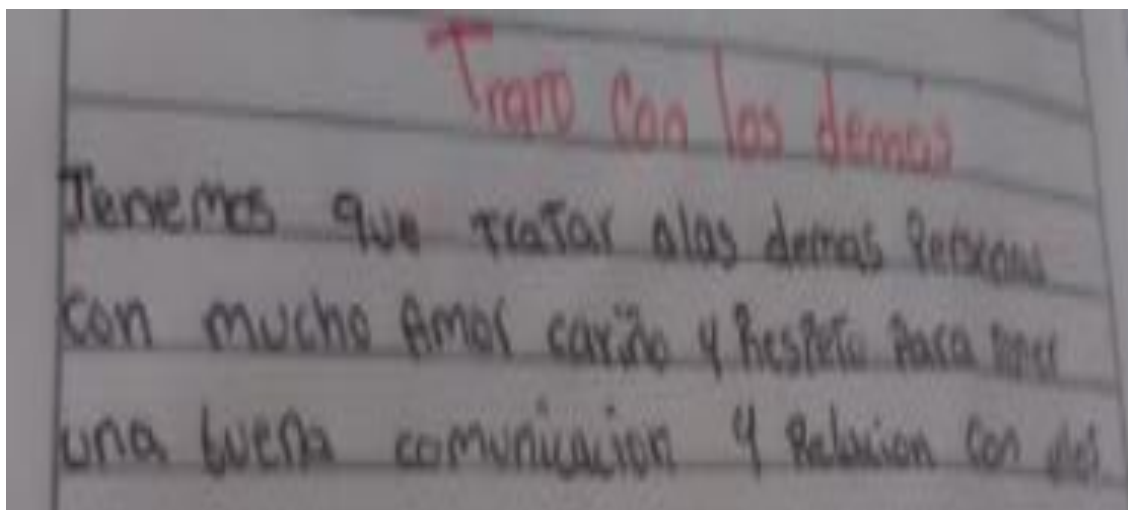 Trato con los demás
Tenemos que tratar alas demas Personas
con mucho Amor cariño y Respeto Para tener
una buena comunicacion y Relacion con